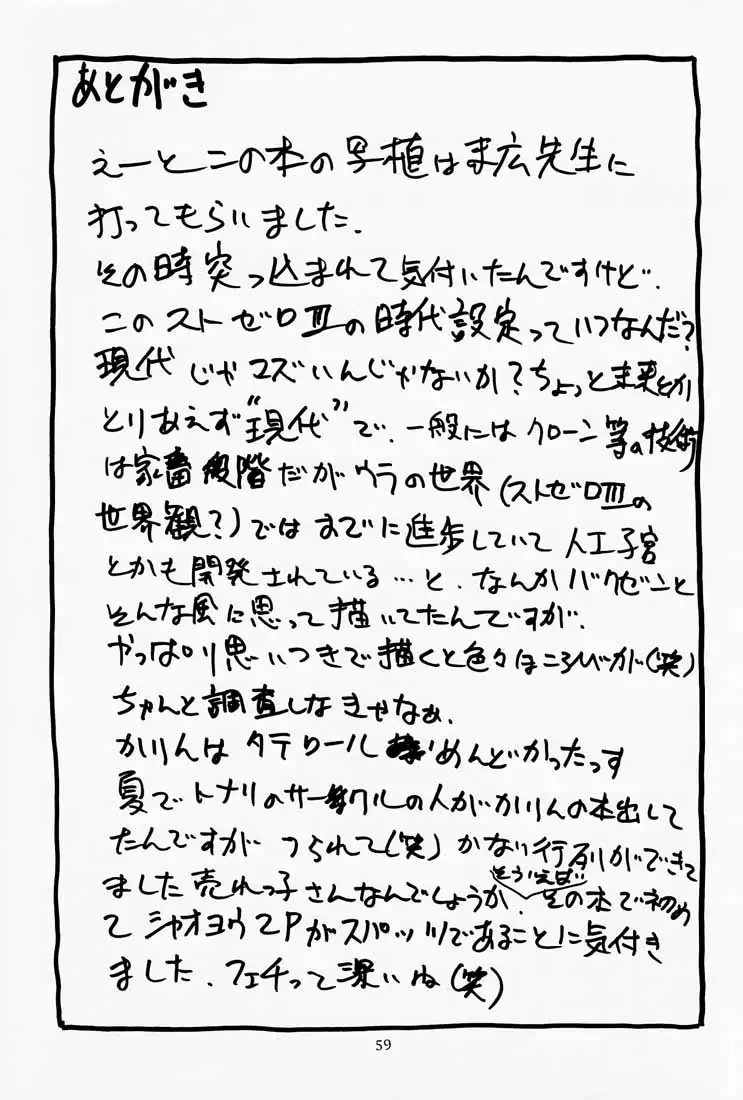 あとがき
えーとこの本の写植はま広先生に
打ってもらいました.
その時突っ込まれて気付いたんですけど.
このストゼロⅢの時代設定っていつなんだ?
現代じゃマズいんじゃないか?ちょっと未来とか
とりあえず“現代”で.一般にはクローン等の技術
は家畜段階だがウラの世界(ストゼロⅢの
世界観?)ではすでに進歩していて人工子宮
とかも開発されている…と.なんかバクゼンと
そんな風に思って描いてたんですが.
やっぱり思いつきで描くと色々ほころびが(笑)
ちゃんと調査しなきゃなぁ.
かりんはタテロールめんどかったっす
夏でトナリのサークルの人がかりんの本出して
たんですがつられて(笑)かなり行列ができて
ました売れっ子さんなんでしょうか.そういえばその本で初め
てシャオヨウ2Pがスパッツであることに気付き
ました.フェチって深いね(笑)
59